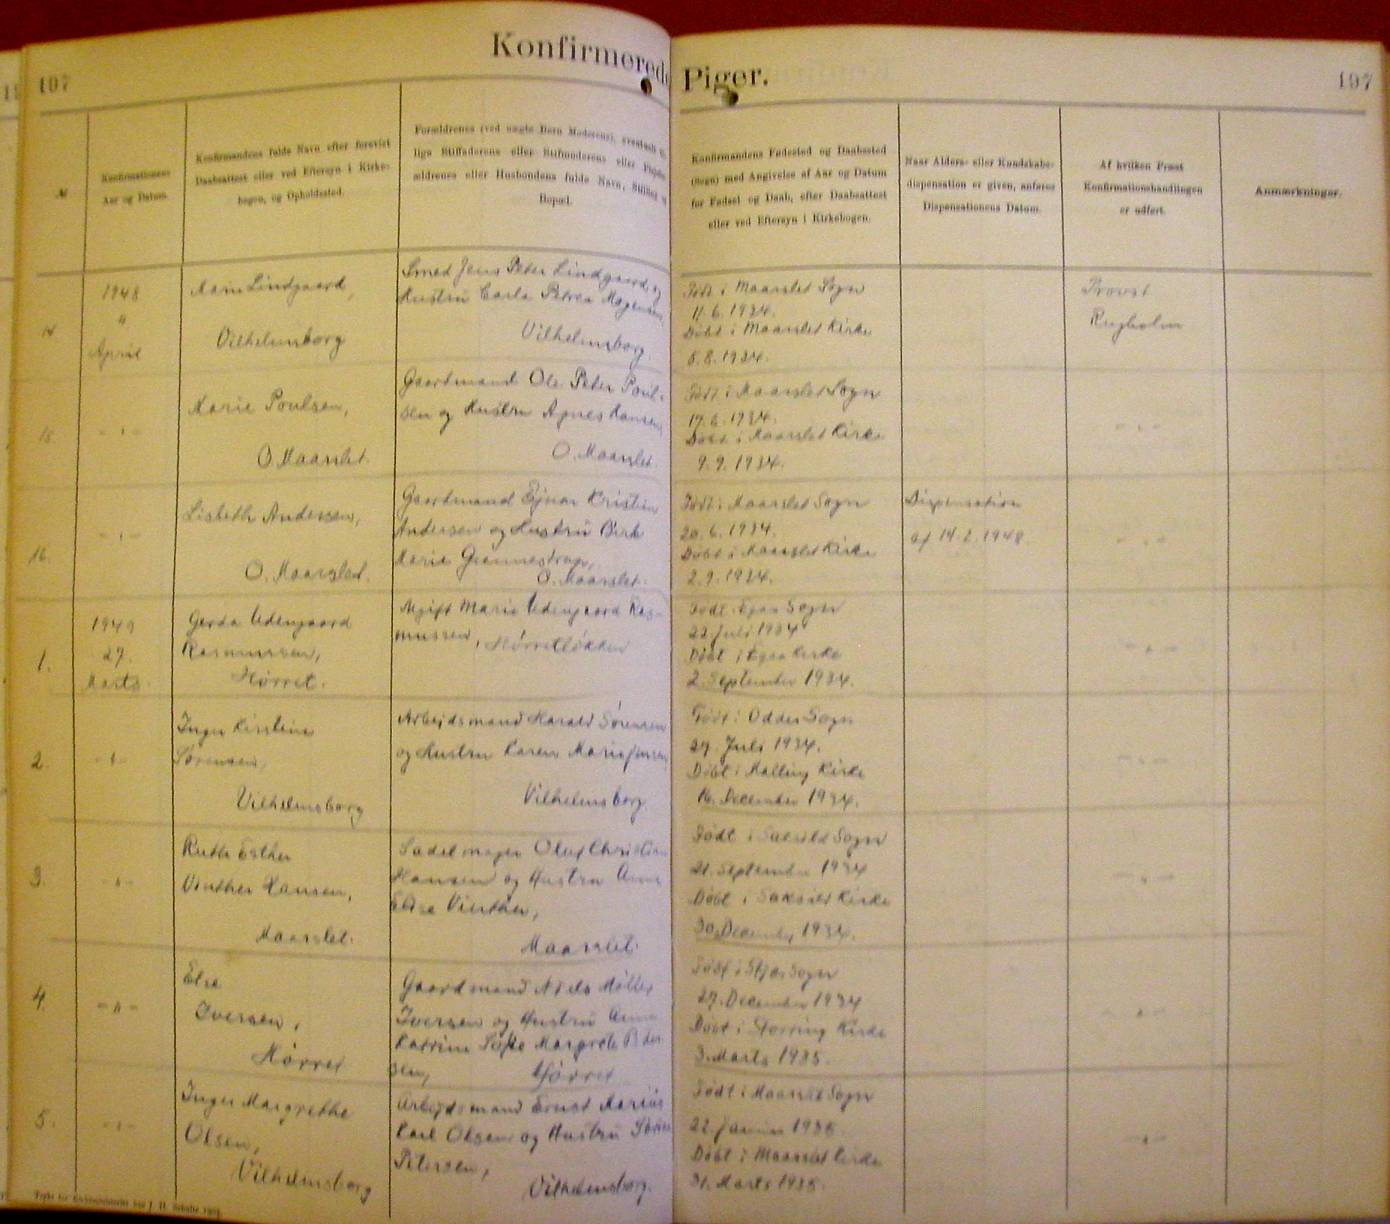 197
Konfirmerede
Piger.
197
№
Konfirmationens
Aar og Datum.
Konfirmandens fulde Navn efter forevist
Daabsattest eller ved Eftersyn i Kirke-
bogen, og Opholdssted.
Forældrenes (ved uægte Børn Moderens), eventuelt
lige Stiffaderens eller Stifmoderens eller
ældrenes eller Husbondens fulde Navn, Stilling
Bopæl.
Konfirmandens Fødested og Daabssted
(Sogn) med Angivelse af Aar og Datum
for Fødsel og Daab, efter Daabsattest
eller ved Eftersyn i Kirkebogen.
Naar Alders- eller Kundskabs-
dispensation er given, anføres
Dispensationens Datum.
Af hvilken Præst
Konfirmationshandlingen
er udført.
Anmærkninger.
14
1948
4
April
Karin Lindgaard,
Vilhelmsborg
Smed Jens Peter Lindgaard og
Hustru Carla Petrea Mogensen,
Vilhelmsborg.
Født i Maarslet Sogn
11.6.1934.
Døbt i Maarslet Kirke
5.8.1934.
Provst
Rugholm
15.
- " -
Marie Poulsen,
O. Maarslet.
Gaardmand Ole Peter Poul-
sen og Hustru Agnes Hansen,
O. Maarslet.
Født i Maarslet Sogn
17.6.1934.
Døbt i Maarslet Kirke
9.9.1934.
- " -
16.
- " -
Lisbeth Andersen,
O. Maarslet.
Gaardmand Ejnar Kristian
Andersen og Hustru Birk
Marie Grønnestrup,
O. Maarslet.
Født i Maarslet Sogn
20.6.1934.
Døbt i Maarslet Kirke
2.9.1934.
Dispensation
af 14.2.1948.
- " -
1.
1949
27.
Marts.
Gerda Udengaard
Rasmussen,
Hørret.
Ugift Marie Udengaard Ras-
mussen, Hørretløkken
Født i Egaa Sogn
22. Juli 1934
Døbt i Egaa Kirke
2. September 1934.
- " -
2.
- " -
Inger Kirstine
Sørensen,
Vilhelmsborg
Arbejdsmand Harald Sørensen
og Hustru Karen Marie Jensen,
Vilhelmsborg.
Født i Odder Sogn
29. Juli 1934.
Døbt i Malling Kirke
16. December 1934.
- " -
3.
- " -
Ruth Esther
Vinther Hansen,
Maarslet.
Sadelmager Oluf Christian
Hansen og Hustru Anna
Elise Vinther,
Maarslet.
Født i Saksild Sogn
21. September 1934
Døbt i Saksild Kirke
30. December 1934.
- " -
4.
- " -
Else
Iversen,
Hørret
Gaardmand Niels Møller
Iversen og Hustru Anna
Katrine Sofie Margrete Peder-
sen, Hørret
Født i Stjær Sogn
27. December 1934
Døbt i Storring Kirke
3. Marts 1935.
- " -
5.
- " -
Inger Margrethe
Olsen,
Vilhelmsborg
Arbejdsmand Ernst Marius
Karl Olsen og Hustru
Petersen,
Vilhelmsborg.
Født i Maarslet Sogn
22. Januar 1935.
Døbt i Maarslet Kirke
31. Marts 1935.
- " -
J. H. Schultz